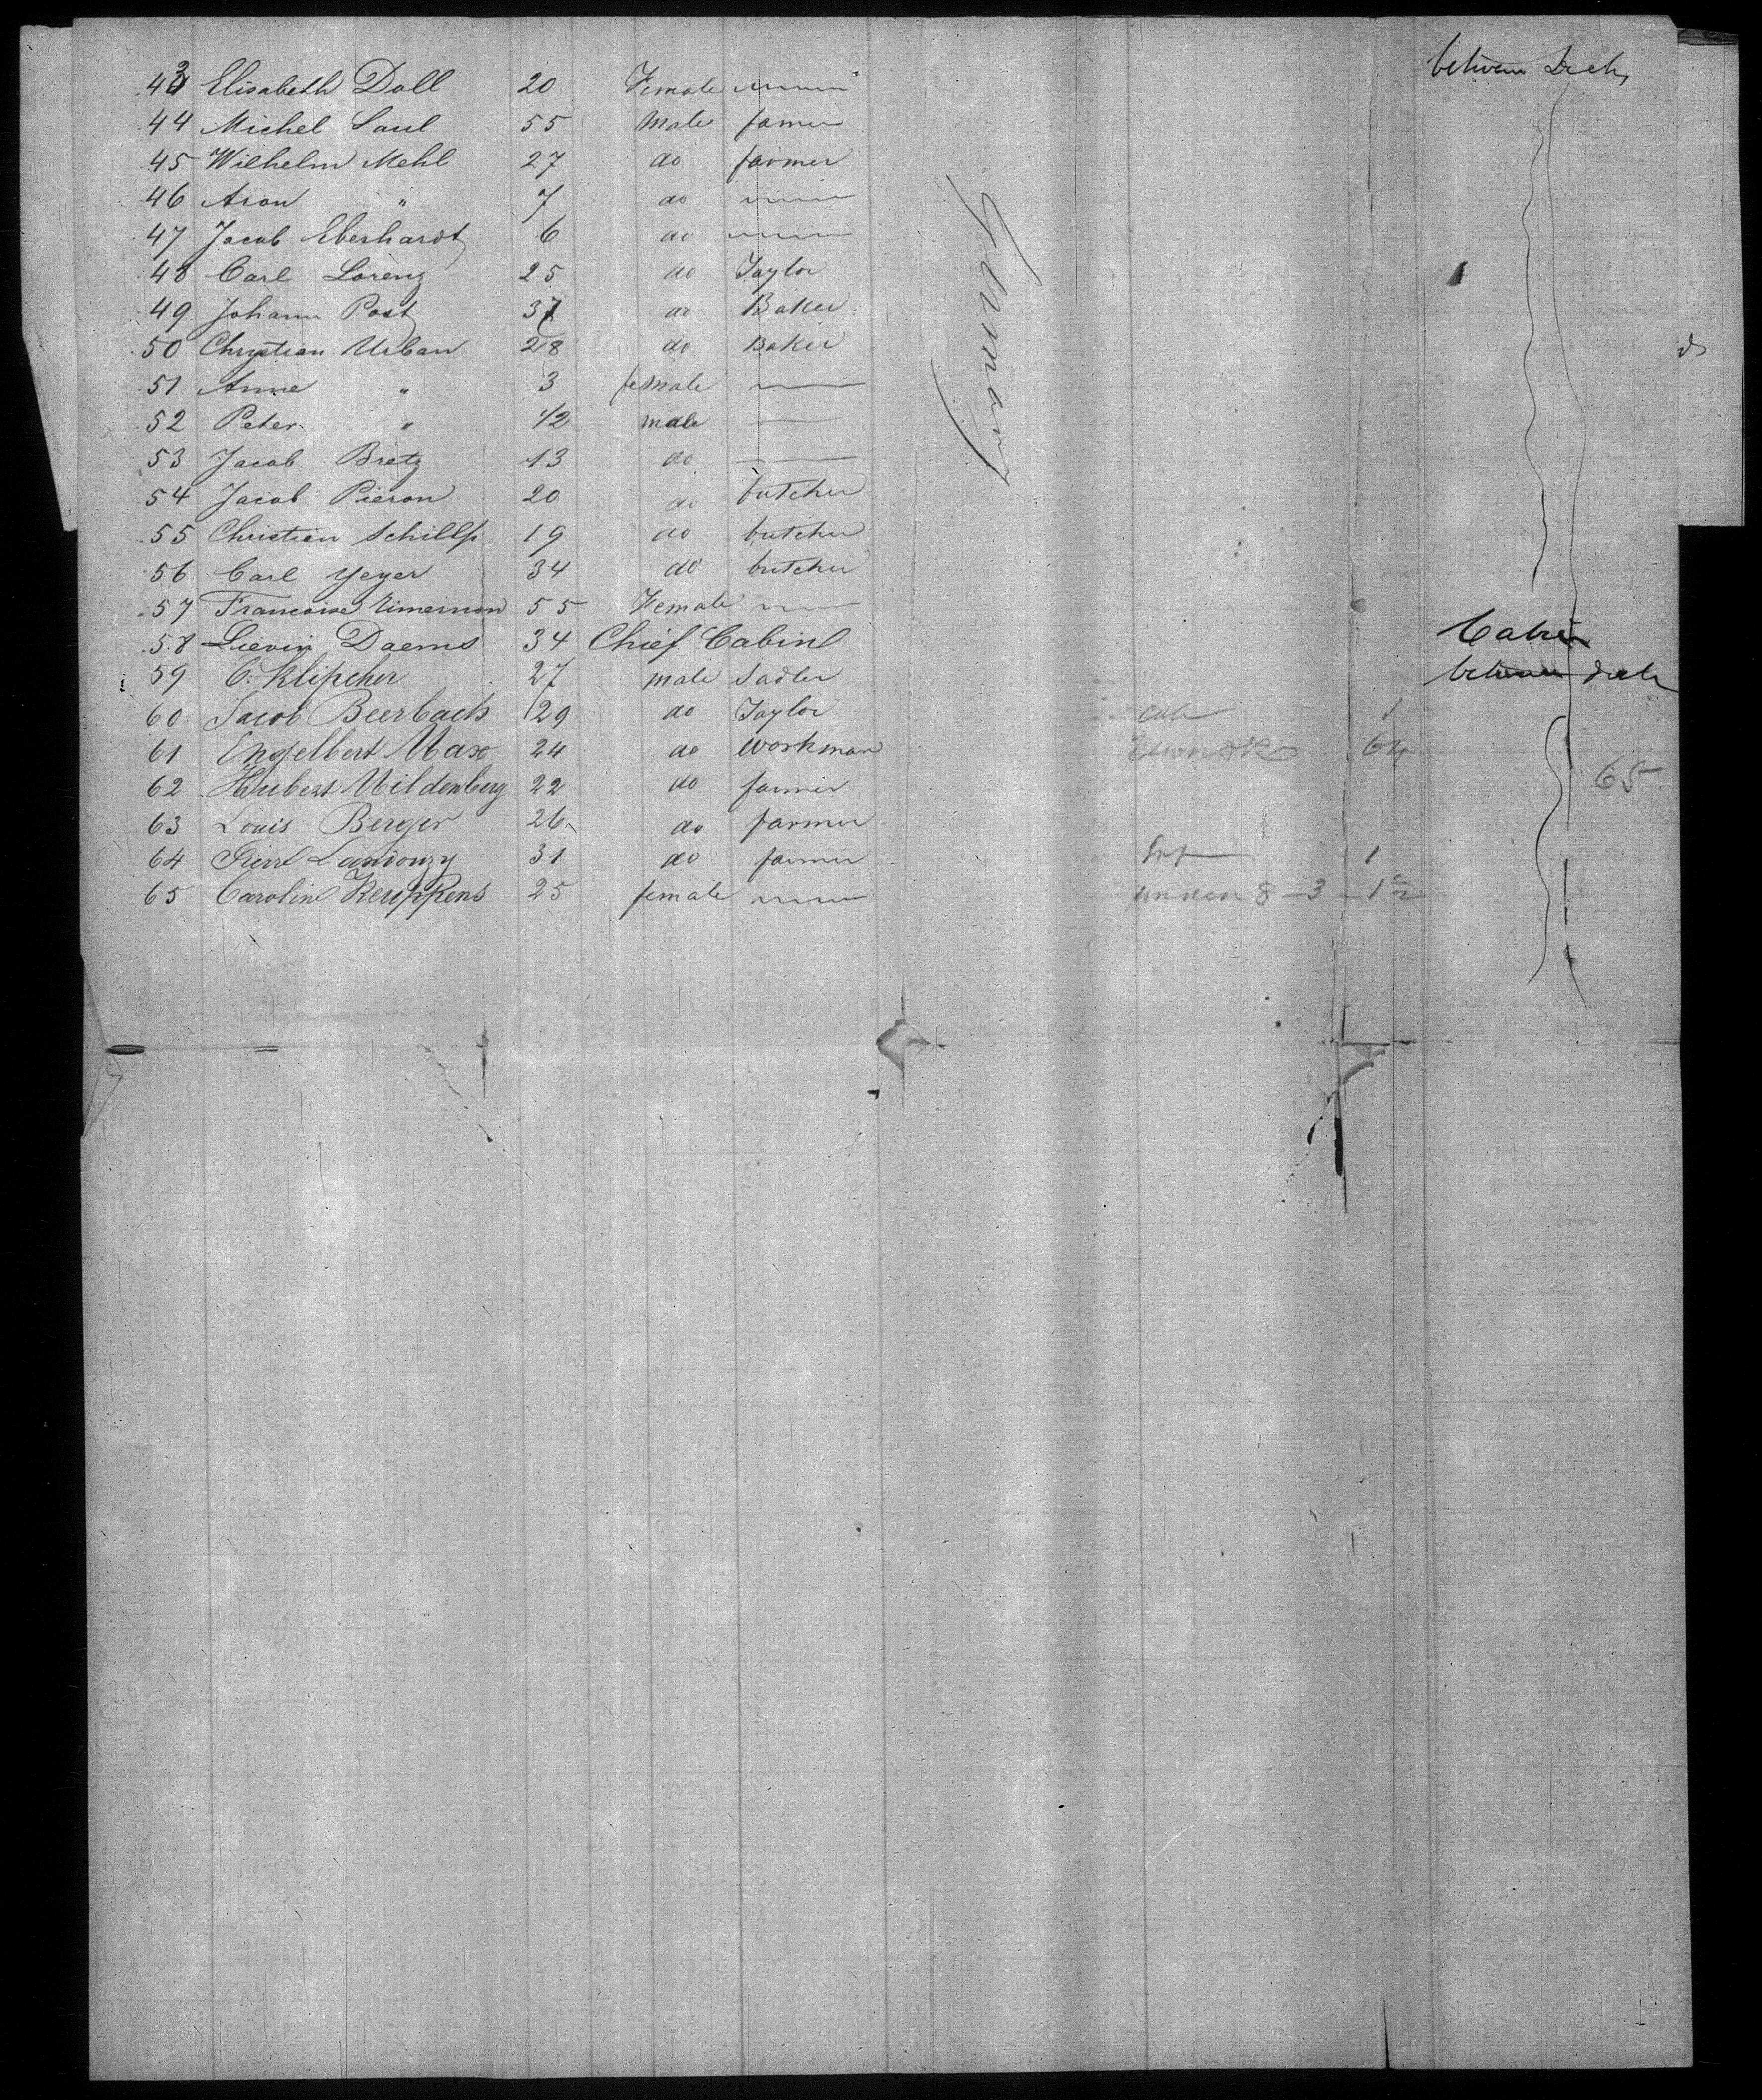 43 Elisabeth Doll 20 Female between Deck
44 Michel Saul 55 Male famer
45 Wilhelm Mehl 27 do farmer
46 Aron " 7 do
47 Jacob Eberhardt 6 do
48 Carl Lorenz 25 do Taylor
49 Johann Post 37 do Baker
50 Chrystian Urban 28 do Baker
51 Anne " 3 female
52 Peter " 1/2 male
53 Jacob Bretz 13 do
54 Jacob Pieron 20 do butcher
55 Christian Schillp 19 do butcher
56 Carl Yeger 34 do butcher
57 Francoise 55 Female
58 Lievin Daems 34 Chief Cabine Cabin
59 C. Klipcher 27 male Sadler between deck
60 Jacob Beerbach 29 do Taylor
61 Engelbert Max 24 do workman 64
62 Hubert Mildenberg 22 do farmer 65
63 Louis Berger 26 do farmer
64 Pierre Landouzy 31 do farmer 1
65 Caroline Keuppens 25 female 8 - 3 -
Germany